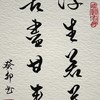 浮生若茗
苦盡甘来
癸卯